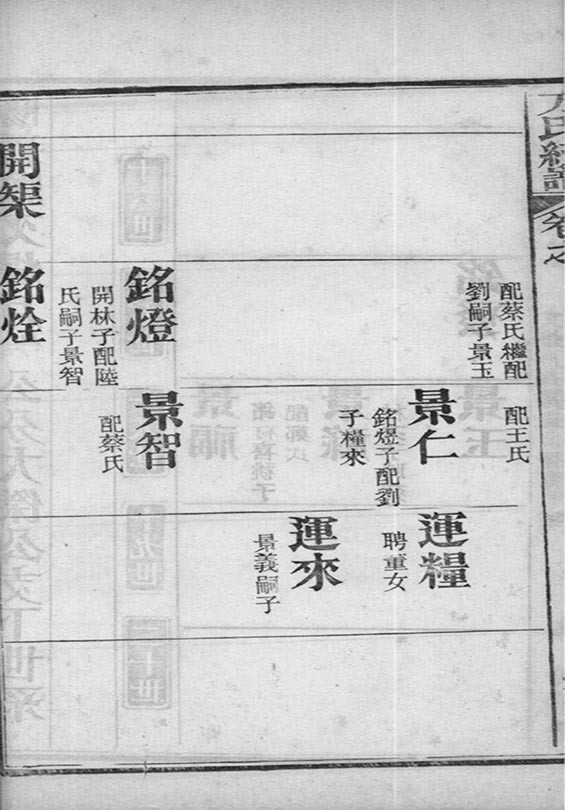 方氏統譜
卷之
配蔡氏繼配
劉嗣子景玉
配王氏
景仁
銘煜子配劉
子糧來
運糧
聘董女
運來
景義嗣子
銘燈
開林子配陸
氏嗣子景智
景智
配蔡氏
開榘
銘烇